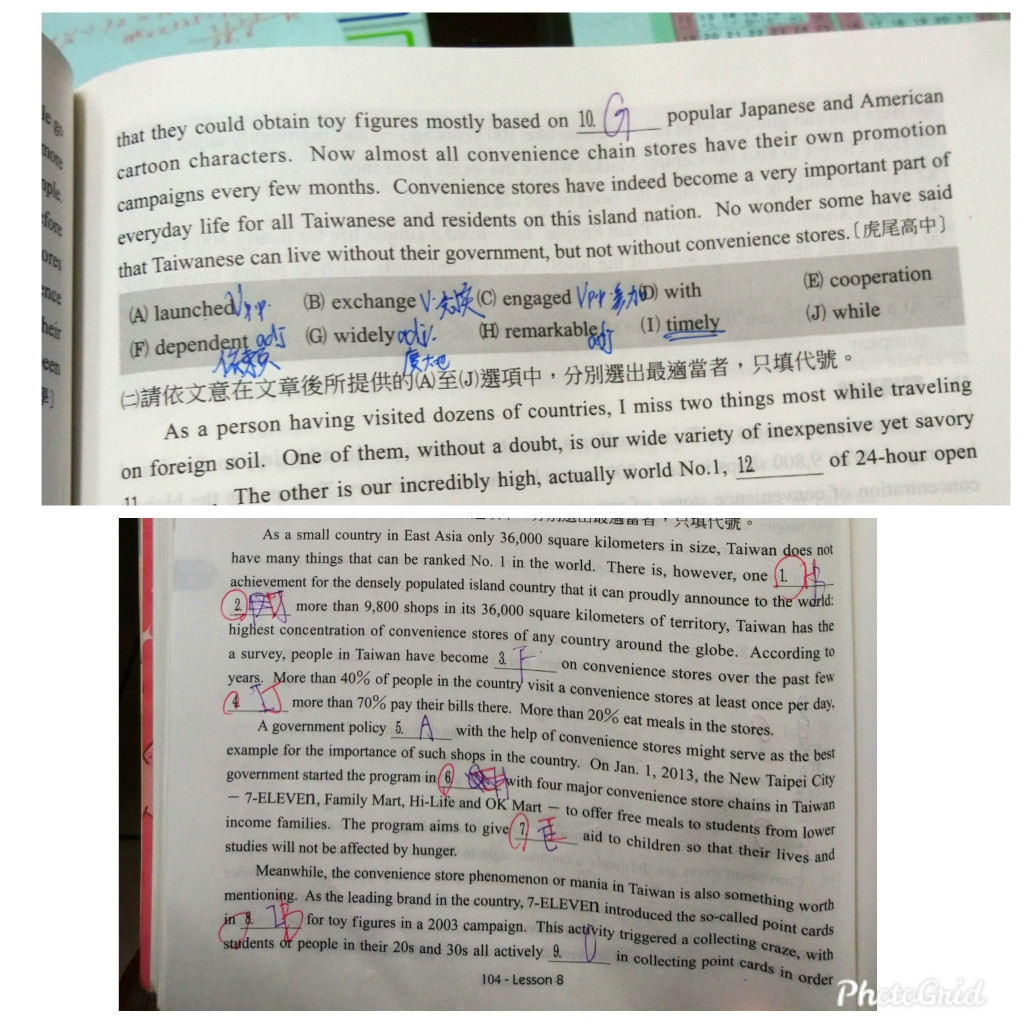 that they could obtain toy figures mostly based on 10. G popular Japanese and American
cartoon characters. Now almost all convenience chain stores have their own promotion
campaigns every few months. Convenience stores have indeed become a very important part of
everyday life for all Taiwanese and residents on this island nation. No wonder some have said
that Taiwanese can live without their government, but not without convenience stores.〔虎尾高中〕
(A) launched Vpp. (B) exchange V.交換 (C) engaged Vpp 參加 (D) with (E) cooperation
(F) dependent adj 依賴 (G) widely adj. 廣大地 (H) remarkable adj (I) timely (J) while
㈡請依文意在文章後所提供的(A)至(J)選項中，分別選出最適當者，只填代號。
As a person having visited dozens of countries, I miss two things most while traveling
on foreign soil. One of them, without a doubt, is our wide variety of inexpensive yet savory
11 . The other is our incredibly high, actually world No.1, 12 of 24-hour open
分別選出最適當者，只填代號。
As a small country in East Asia only 36,000 square kilometers in size, Taiwan does not
have many things that can be ranked No. 1 in the world. There is, however, one 1.
achievement for the densely populated island country that it can proudly announce to the world:
2. more than 9,800 shops in its 36,000 square kilometers of territory, Taiwan has the
highest concentration of convenience stores of any country around the globe. According to
a survey, people in Taiwan have become 3. F on convenience stores over the past few
years. More than 40% of people in the country visit a convenience stores at least once per day,
4 I J more than 70% pay their bills there. More than 20% eat meals in the stores.
A government policy 5. A with the help of convenience stores might serve as the best
example for the importance of such shops in the country. On Jan. 1, 2013, the New Taipei City
government started the program in 6. with four major convenience store chains in Taiwan
— 7-ELEVEn, Family Mart, Hi-Life and OK Mart — to offer free meals to students from lower
income families. The program aims to give 7. aid to children so that their lives and
studies will not be affected by hunger.
Meanwhile, the convenience store phenomenon or mania in Taiwan is also something worth
mentioning. As the leading brand in the country, 7-ELEVEn introduced the so-called point cards
in 8. B for toy figures in a 2003 campaign. This activity triggered a collecting craze, with
students or people in their 20s and 30s all actively 9. in collecting point cards in order
104 - Lesson 8
PhotoGrid